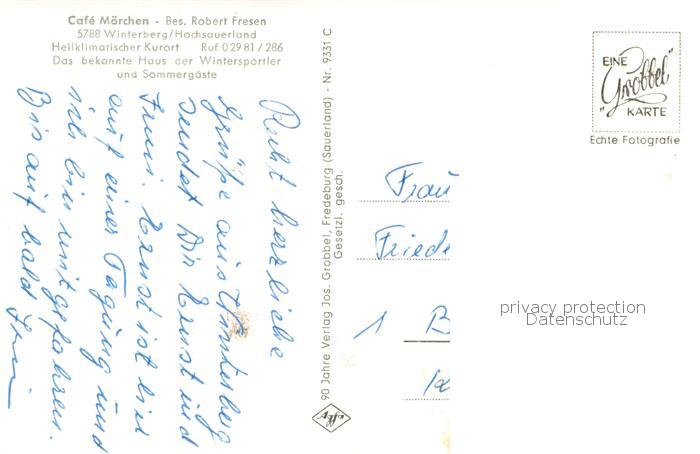 Café Mörchen - Bes. Robert Fresen
5788 Winterberg/Hochsauerland
Heilklimatischer Kurort Ruf 0 29 81 / 286
Das bekannte Haus der Wintersportler
und Sommergäste
Recht herzliche
Grüße aus Winterberg
sendet Dir Ernst und
Irmi. Ernst ist hier
auf einer Tagung und
ich bin mitgefahren.
Bis auf bald Irmi
90 Jahre Verlag Jos. Grobbel, Fredeburg (Sauerland) - Nr. 9331 C
Gesetzl. gesch.
Agfa
EINE
"Grobbel"
KARTE
Echte Fotografie
Frau
Friede
1 B
privacy protection
Datenschutz